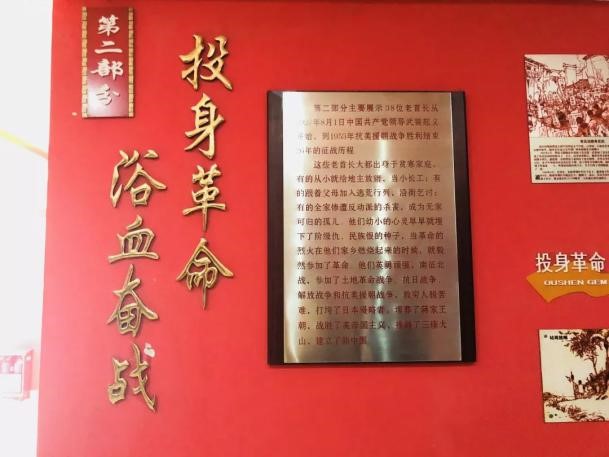 第二部分
投身革命
浴血奋战
第二部分主要展示38位老首长从
1927年8月1日中国共产党领导武装起义
开始，到1953年抗美援朝战争胜利结束
26年的征战历程
这些老首长大都出身于贫寒家庭，
有的从小就给地主放牛，当小长工；有
的跟着父母加入逃荒行列，沿街乞讨；
有的全家惨遭反动派的杀害，成为无家
可归的孤儿。他们幼小的心灵早早就埋
下了阶级仇、民族恨的种子，当革命的
烈火在他们家乡燃烧起来的时候，就毅
然参加了革命。他们英勇顽强，南征北
战，参加了土地革命战争、抗日战争、
解放战争和抗美援朝战争，救穷人脱苦
难，打垮了日本侵略者，埋葬了蒋家王
朝，战胜了美帝国主义，推翻了三座大
山，建立了新中国
投身革命
OUSHEN GEM